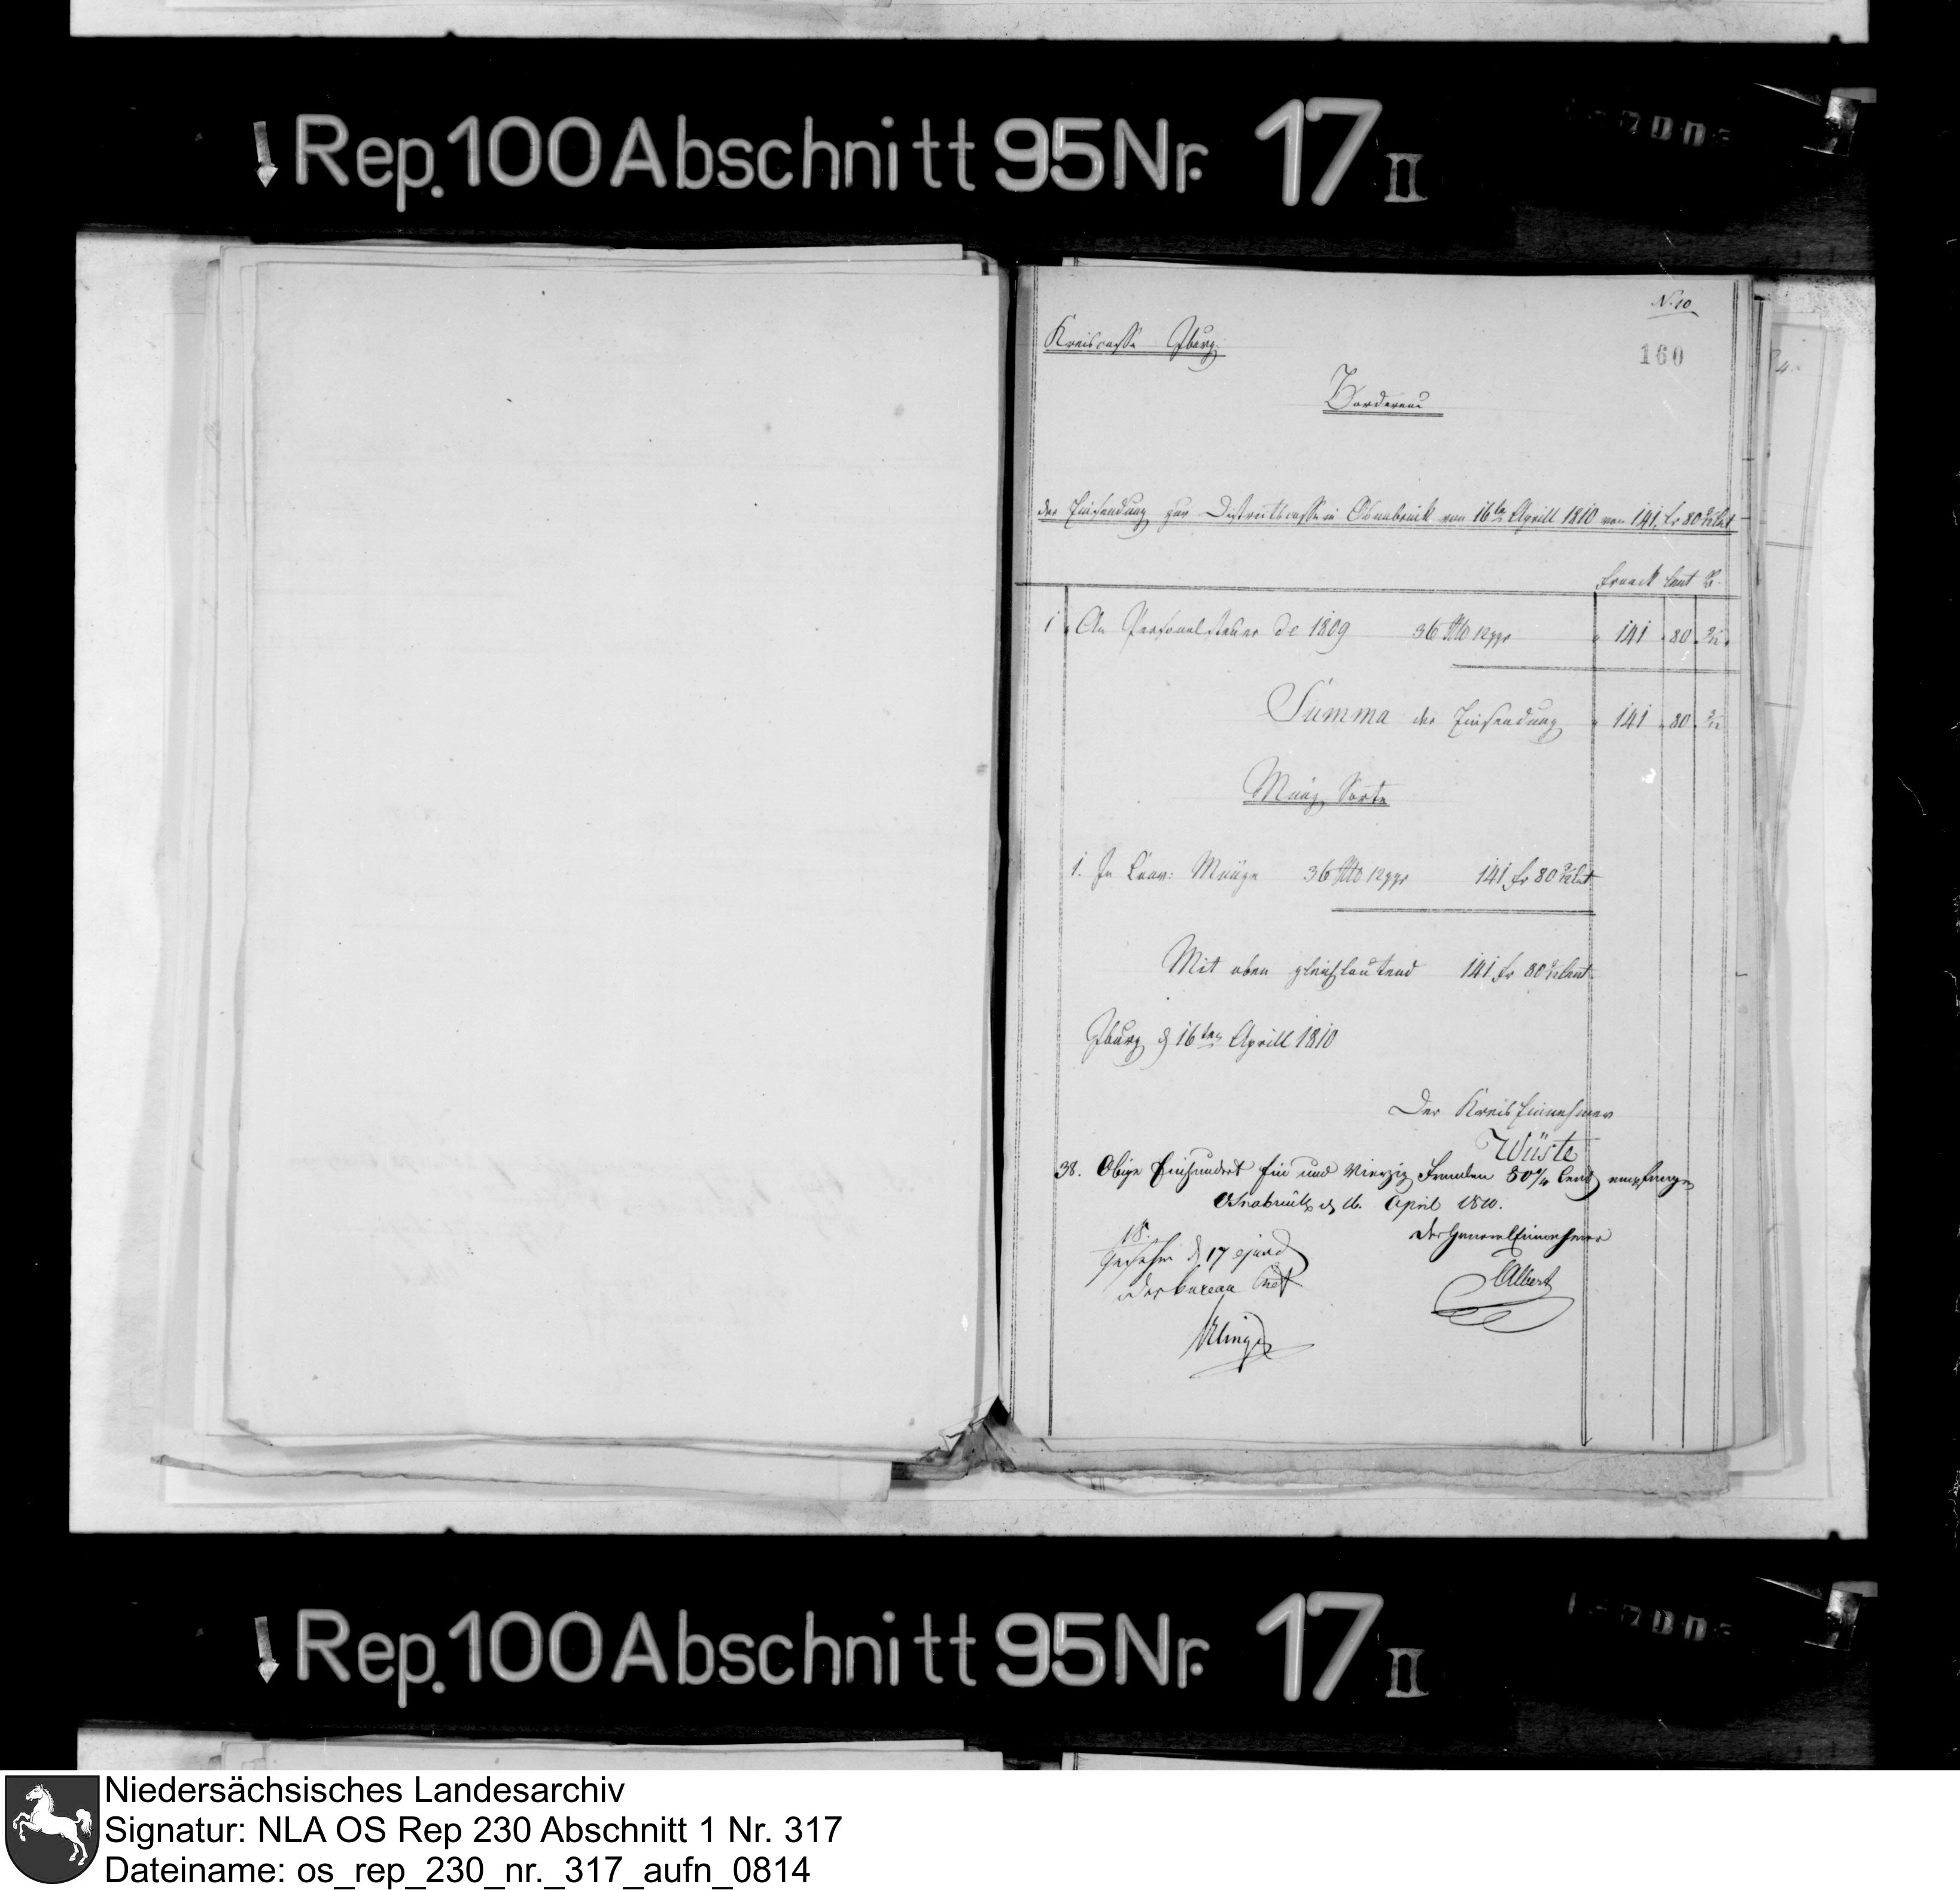 Rep. 100 Abschnitt 95 Nr. 17 II
N. 10
160
Kreiscasse Iburg
Bordereau
der Einsendung zur Districtscasse in Osnabrück vom 16te Aprill 1810 von 141 fr 80 Cent
Franck Cent
1 An Personalsteuer de 1809 36 12 ggr 141 80
Summa der Einsendung 141 80
Münz Sorte
1. In Conv: Münze 36 12 ggr 141 fr 80 Cent
Mit oben gleichlautend 141 fr 80 Cent
Iburg d 16ten Aprill 1810
Der Kreis Einnehmer
Wüste
38. Obige Einhundert Ein und Vierzig Franken 80 Cent empfangen
Osnabrück d 16. April 1810.
der General Einnehmer
Albert
18.
Gesehen d 17 ejusd
der bureau Chef
Rep. 100 Abschnitt 95 Nr. 17 II
Niedersächsisches Landesarchiv
Signatur: NLA OS Rep 230 Abschnitt 1 Nr. 317
Dateiname: os_rep_230_nr._317_aufn_0814